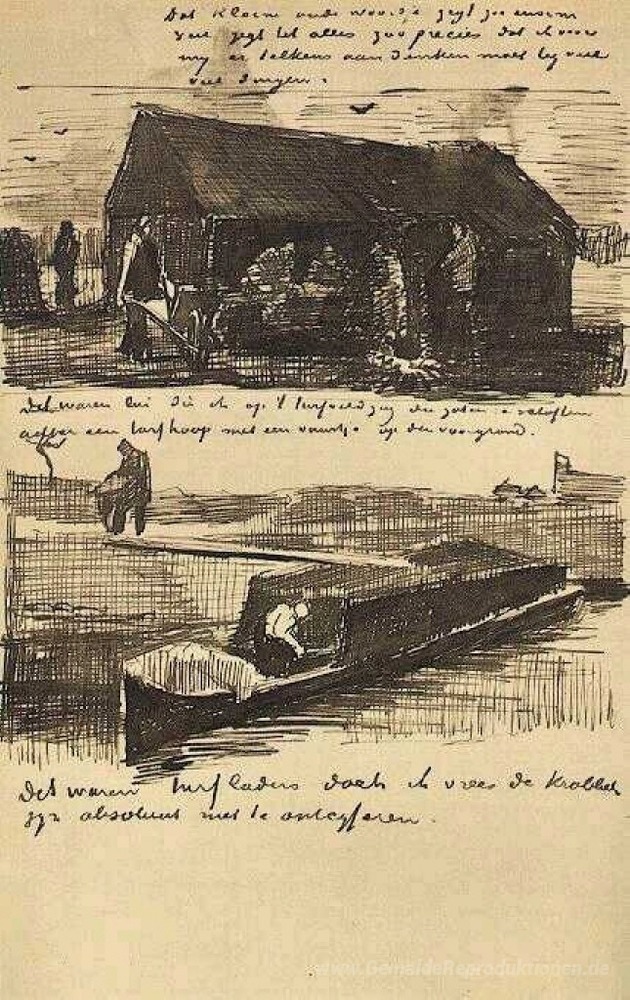 Dat kleine oude woordje zegt zoo enorm
veel zegt het alles zoo precies dat ik voor
my er telkens aan denken moet by veel
veel dingen.
Dit waren lui die ik op 't turfveld zag die zaten
achter een turfhoop met een vuurtje op den voorgrond.
Dit waren turfladers doch ik vrees de krabbels
zyn absoluut niet te ontcyferen.
www.GemaldeReproduktionen.de